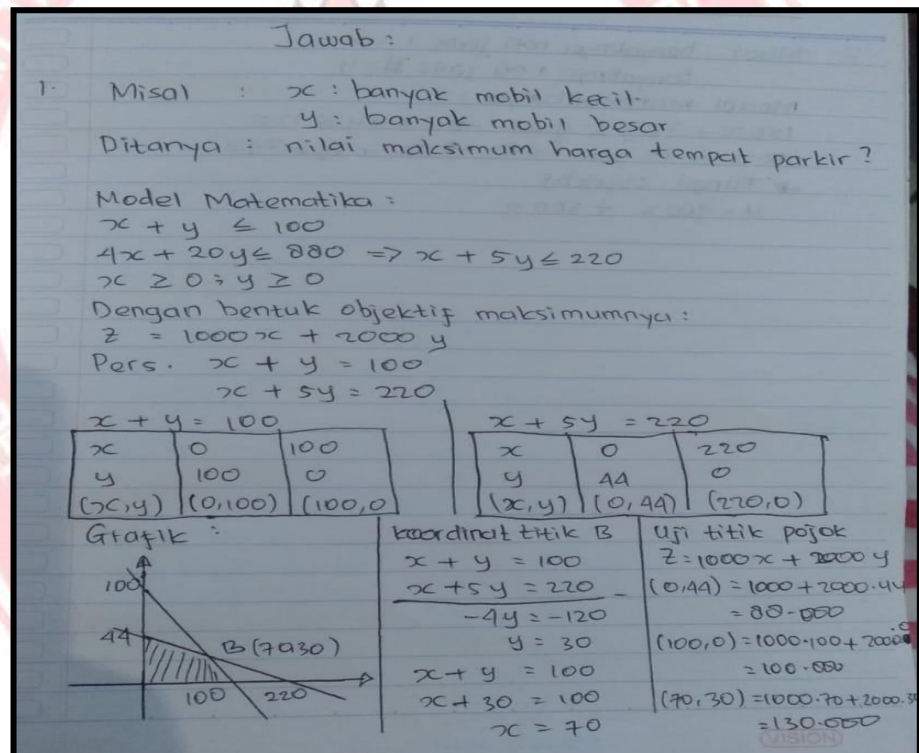 Jawab :
1. Misal : x : banyak mobil kecil.
y : banyak mobil besar
Ditanya : nilai maksimum harga tempat parkir ?
Model Matematika :
x + y ≤ 100
4x + 20y ≤ 880 => x + 5y ≤ 220
x ≥ 0 ; y ≥ 0
Dengan bentuk objektif maksimumnya :
z = 1000x + 2000y
Pers. x + y = 100
x + 5y = 220
x + y = 100
x 0 100
y 100 0
(x,y) (0,100) (100,0
x + 5y = 220
x 0 220
y 44 0
(x,y) (0,44) (220,0)
Grafik :
100
44
B(7030)
100 220
koordinat titik B
x + y = 100
x + 5y = 220 -
-4y = -120
y = 30
x + y = 100
x + 30 = 100
x = 70
Uji titik pojok
Z = 1000x + 2000y
(0,44) = 1000 + 2000.44
= 88.000
(100,0) = 1000.100 + 2000.0
= 100.000
(70,30) = 1000.70 + 2000.30
= 130.000
VISION